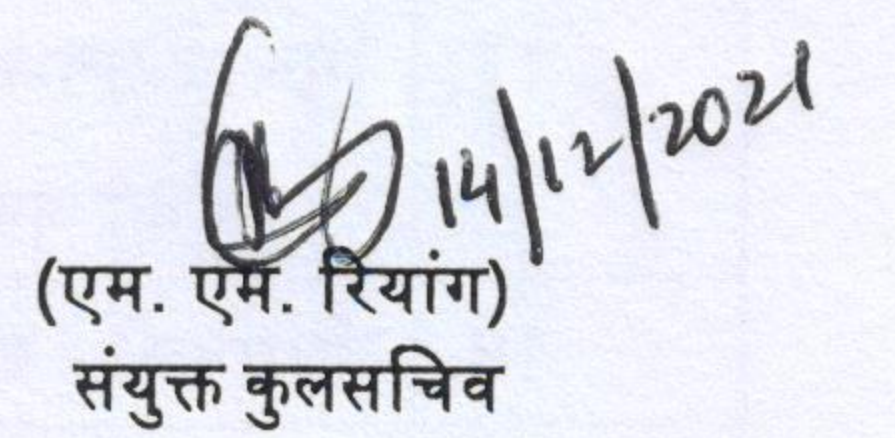 14/12/2021
(एम. एम. रियांग)
संयुक्त कुलसचिव